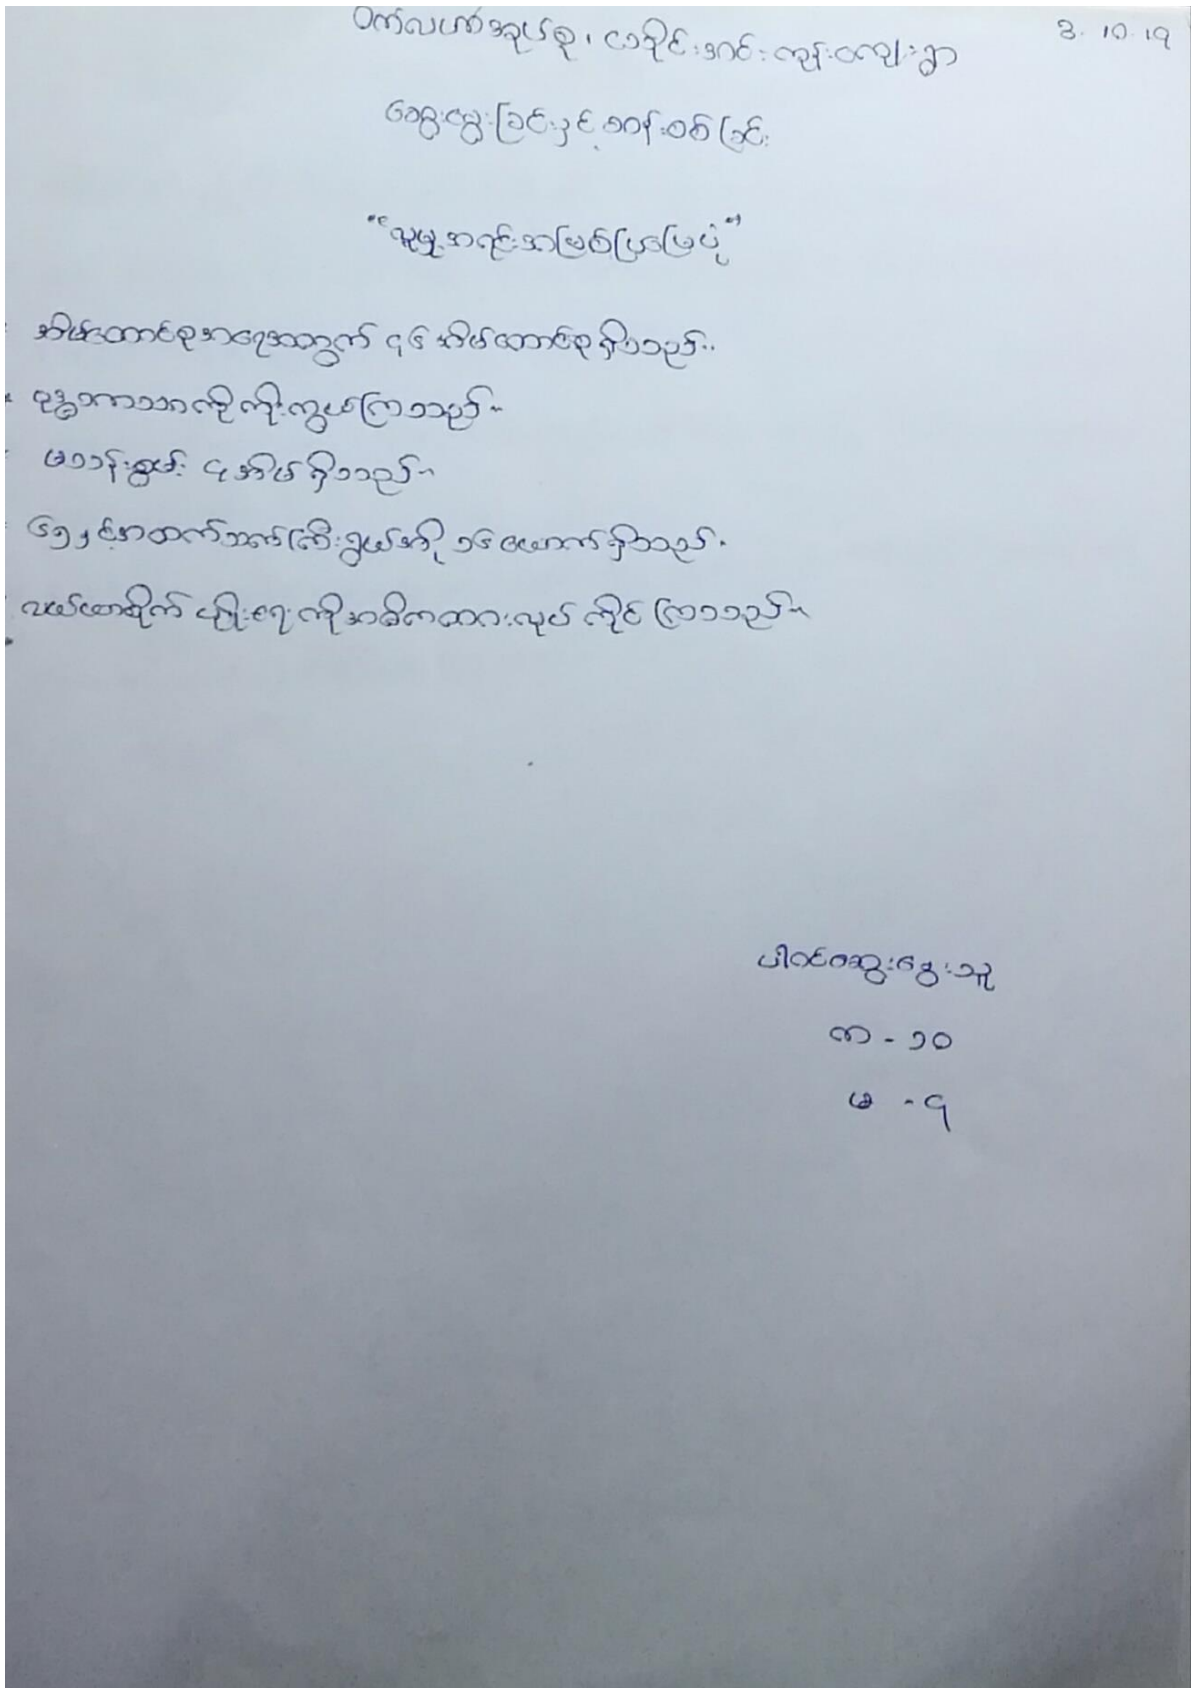 ဝက်လဟာအုပ်စု၊ ငါးပိုင်းအင်းကုန်းကျေးရွာ 3.10.19
ဆွေးနွေးခြင်းနှင့်စာန်းစစ်ခြင်း
"လူမှုအရင်းအမြစ်ပြမြေပုံ"
အိမ်ထောင်စုအရေအတွက် ၄၆ အိမ်ထောင်စုရှိသည်။
ဗုဒ္ဓဘာသာကိုကိုးကွယ်ကြသည်။
မသန်စွမ်း ၄ အိမ်ရှိသည်။
၆၅ နှင့်အထက်သက်ကြီးရွယ်အို ၁၆ ယောက်ရှိသည်။
လယ်ယာစိုက်ပျိုးရေးကိုအဓိကထားလုပ်ကိုင်ကြသည်။
ပါဝင်ဆွေးနွေးသူ
ကာ - ၁၀
မ - ၄